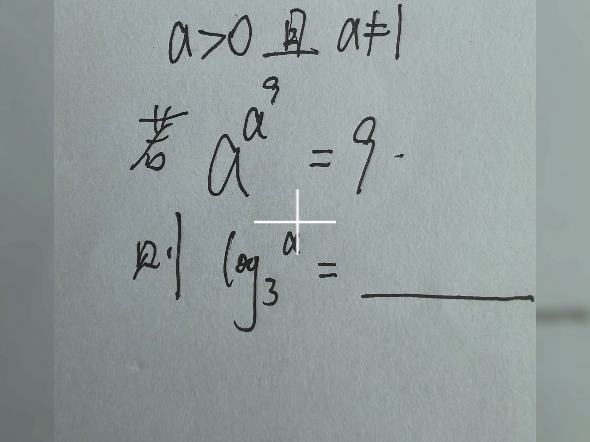 a>0 且 a≠1
若 a^{a^9} = 9.
则 log_3 a = ____